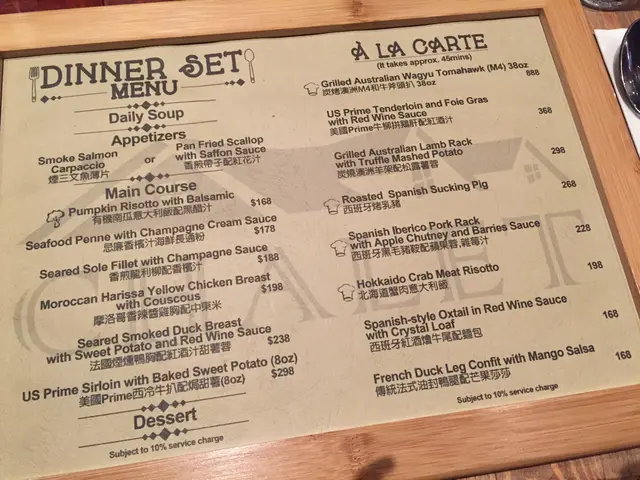 DINNER SET
MENU
Daily Soup
Appetizers
Smoke Salmon
Carpaccio
煙三文魚薄片
or
Pan Fried Scallop
with Saffon Sauce
香煎帶子配紅花汁
Main Course
Pumpkin Risotto with Balsamic $168
有機南瓜意大利飯配黑醋汁
Seafood Penne with Champagne Cream Sauce $178
忌廉香檳汁海鮮長通粉
Seared Sole Fillet with Champagne Sauce $188
香煎龍利柳配香檳汁
Moroccan Harissa Yellow Chicken Breast
with Couscous $198
摩洛哥香辣醬雞胸配中東米
Seared Smoked Duck Breast
with Sweet Potato and Red Wine Sauce $238
法國煙燻鴨胸配紅酒汁甜薯蓉
US Prime Sirloin with Baked Sweet Potato (8oz) $298
美國Prime西冷牛扒配焗甜薯(8oz)
Dessert
Subject to 10% service charge
À LA CARTE
(It takes approx. 45mins)
Grilled Australian Wagyu Tomahawk (M4) 38oz 888
炭烤澳洲M4和牛斧頭扒 38oz
US Prime Tenderloin and Foie Gras
with Red Wine Sauce 368
美國Prime牛柳拼鵝肝配紅酒汁
Grilled Australian Lamb Rack
with Truffle Mashed Potato 298
炭燒澳洲羊架配松露薯蓉
Roasted Spanish Sucking Pig 268
西班牙烤乳豬
Spanish Iberico Pork Rack
with Apple Chutney and Barries Sauce 228
西班牙黑毛豬鞍配蘋果蓉,莓汁
Hokkaido Crab Meat Risotto 198
北海道蟹肉意大利飯
Spanish-style Oxtail in Red Wine Sauce
with Crystal Loaf 168
西班牙紅酒燴牛尾配麵包
French Duck Leg Confit with Mango Salsa 168
傳統法式油封鴨腿配芒果莎莎
Subject to 10% service charge
CHALET